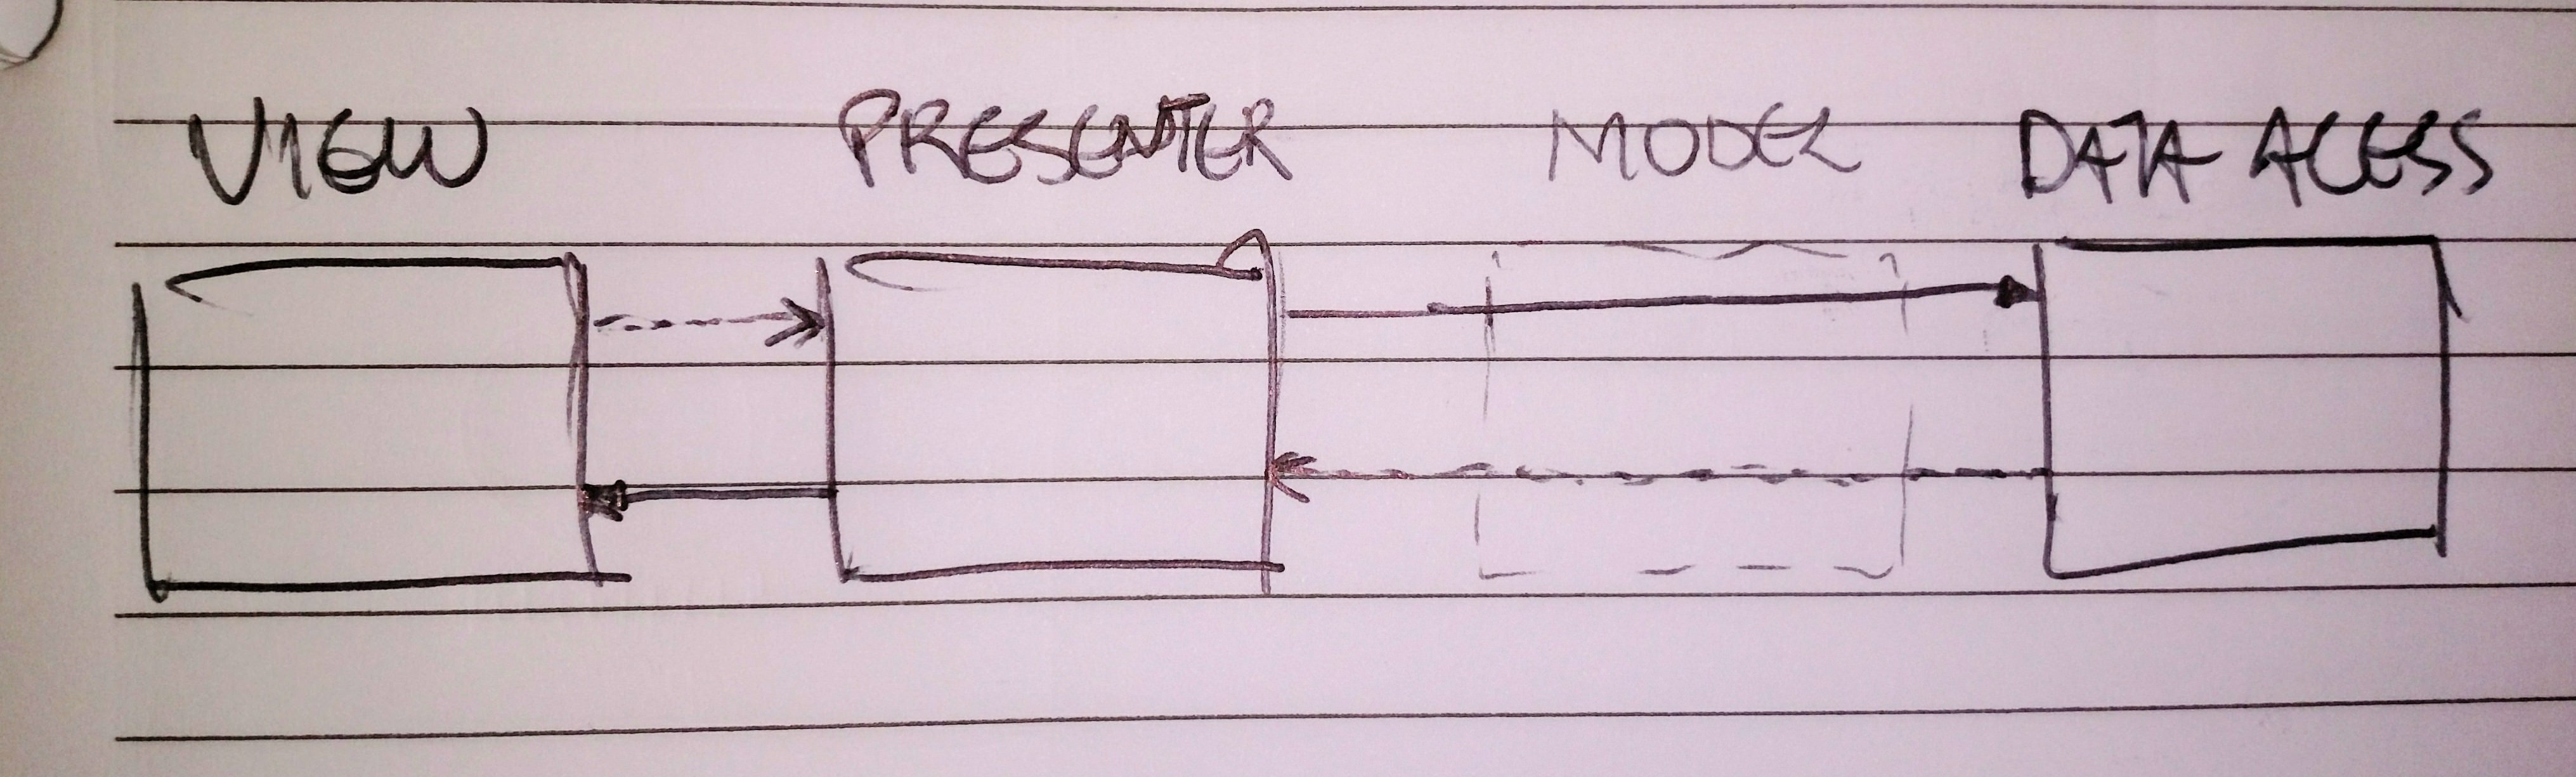 VIEW PRESENTER MODEL DATA ACESS